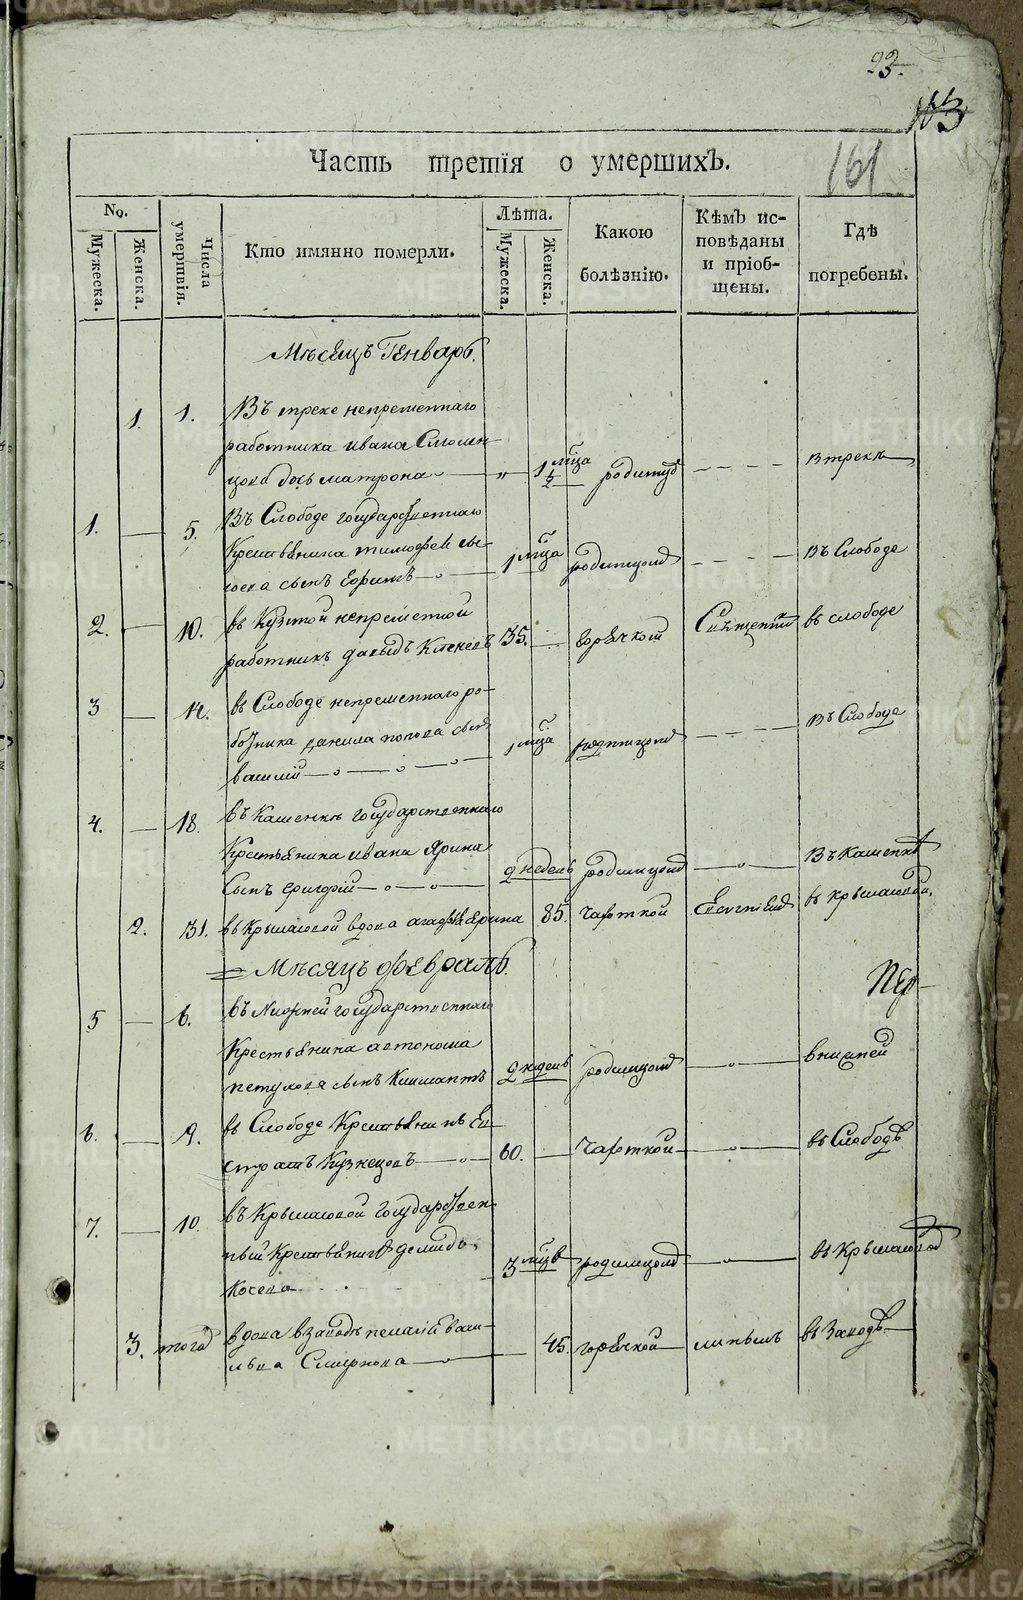 23.
103
161
Часть третія о умершихъ.
No.
Мужеска.
Женска.
Числа умершія.
Кто имянно померли.
Лѣта.
Мужеска.
Женска.
Какою болѣзнію.
Кѣмъ исповѣданы и пріобщены.
Гдѣ погребены.
Мѣсяцъ Генварь.
1. 1. Въ треке непременнаго
работника ивана Смолен-
цова дочь матрона 1 мца родимцомъ втреке
1. 5. Въ Слободе государственнаго
Крестьянина тимофея
сынъ Ефимъ 1 мца родимцомъ въ Слободе
2. 10. непременной
работникъ давыдъ 35. горячкой Священникомъ въ слободе
3 14. въ Слободе непременнаго ра-
ботника данила попова сынъ 1 мца родимцомъ въ Слободе
василий
4. 18. въ Кашенке государственнаго
Крестьянина ивана Ярина 2 недель родимцомъ въ Кашенке
сынъ григорий
2. 31. въ Крылатовой вдова агафья Ярина 85. чахоткой въ крылатовой.
Мѣсяцъ февраль.
Пер-
5 6. въ Нижней государственнаго
Крестьянина автонома
петухова сынъ 2 недель родимцомъ внижней
6. 9. въ Слободе Крестьянинъ Ев-
стратъ Кузнецовъ 60. чахоткой въ Слободѣ
7. 10. въ Крылатовой государствен-
ный Крестьянинъ демидъ
Косова 3 мцв родимцомъ въ Крылатовой
3. того вдова взаводѣ пелагия васи-
льева Смирнова 45. горячкой въ Заводѣ
METRIKI.GASO-URAL.RU